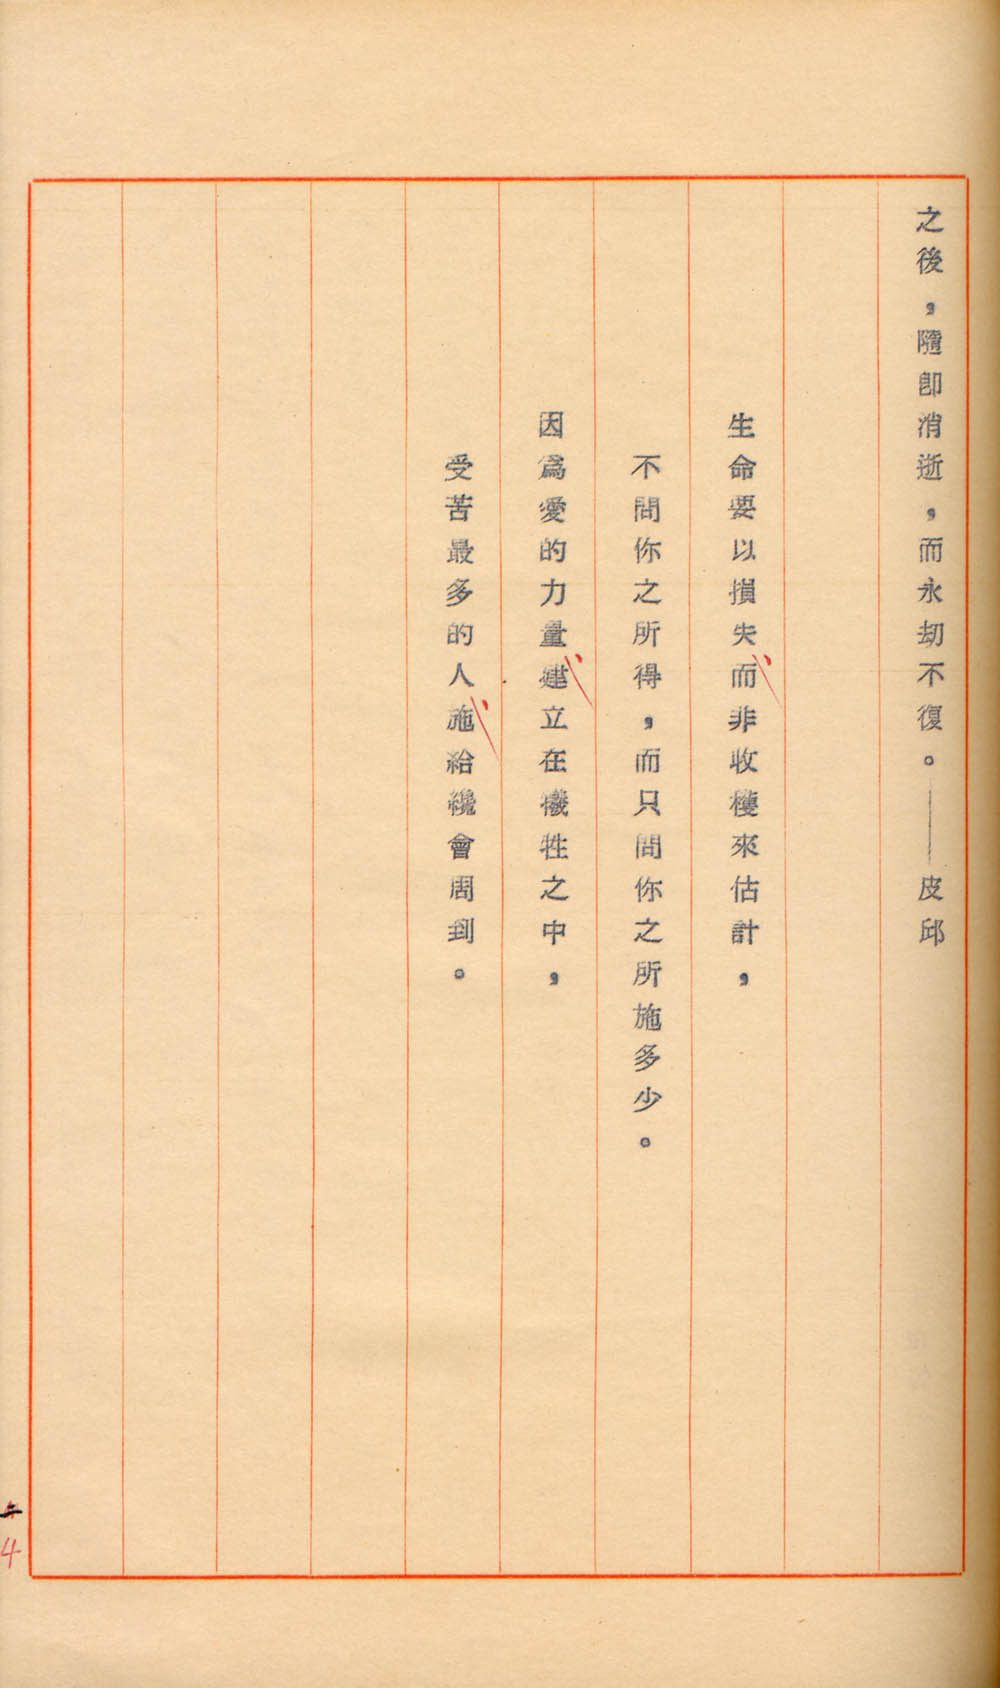 之後，隨即消逝，而永劫不復。——皮邱
生命要以損失、而非收穫來估計，
不問你之所得，而只問你之所施多少。
因爲愛的力量、建立在犧牲之中，
受苦最多的人、施給纔會周到。
4